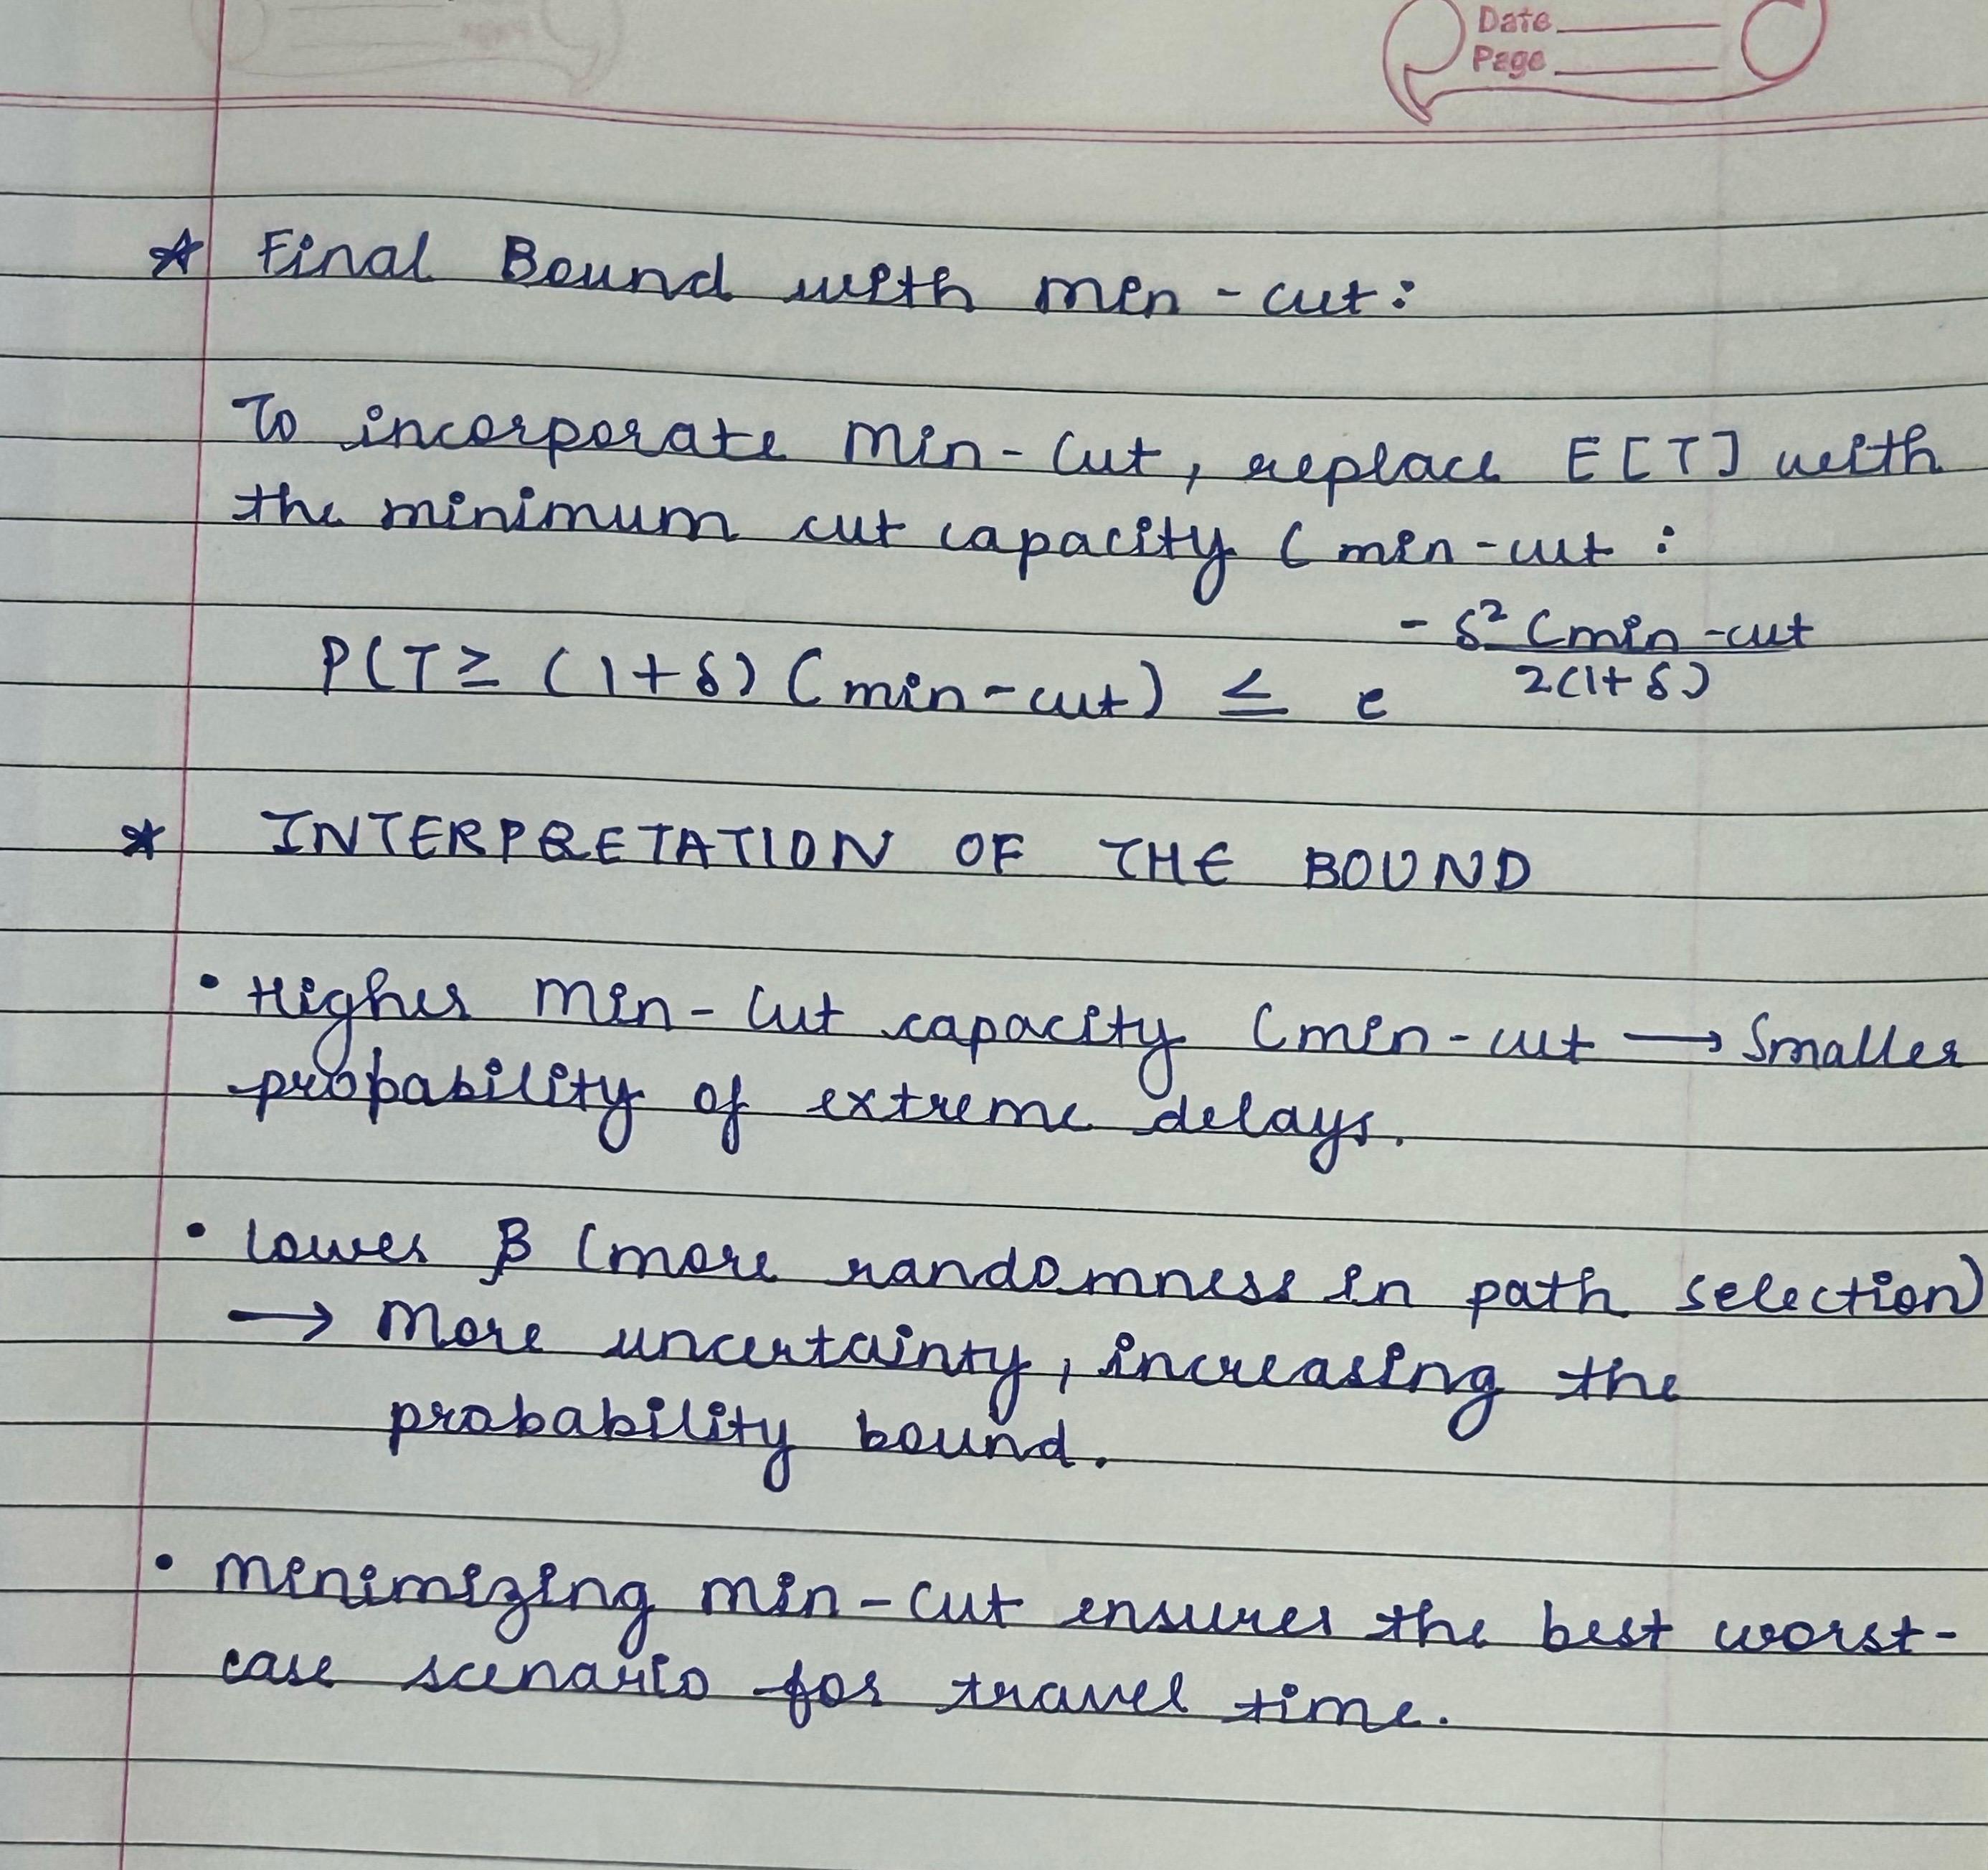 Date
Page
* Final Bound with min-cut:
To incorporate Min-Cut, replace E[T] with
the minimum cut capacity Cmin-cut :
P(T ≥ (1+δ) Cmin-cut) ≤ e^(-δ² Cmin-cut / 2(1+δ))
* INTERPRETATION OF THE BOUND
• Higher Min-Cut capacity Cmin-cut → Smaller
probability of extreme delays.
• Lower β (more randomness in path selection)
→ More uncertainty, increasing the
probability bound.
• Minimizing min-cut ensures the best worst-
case scenario for travel time.